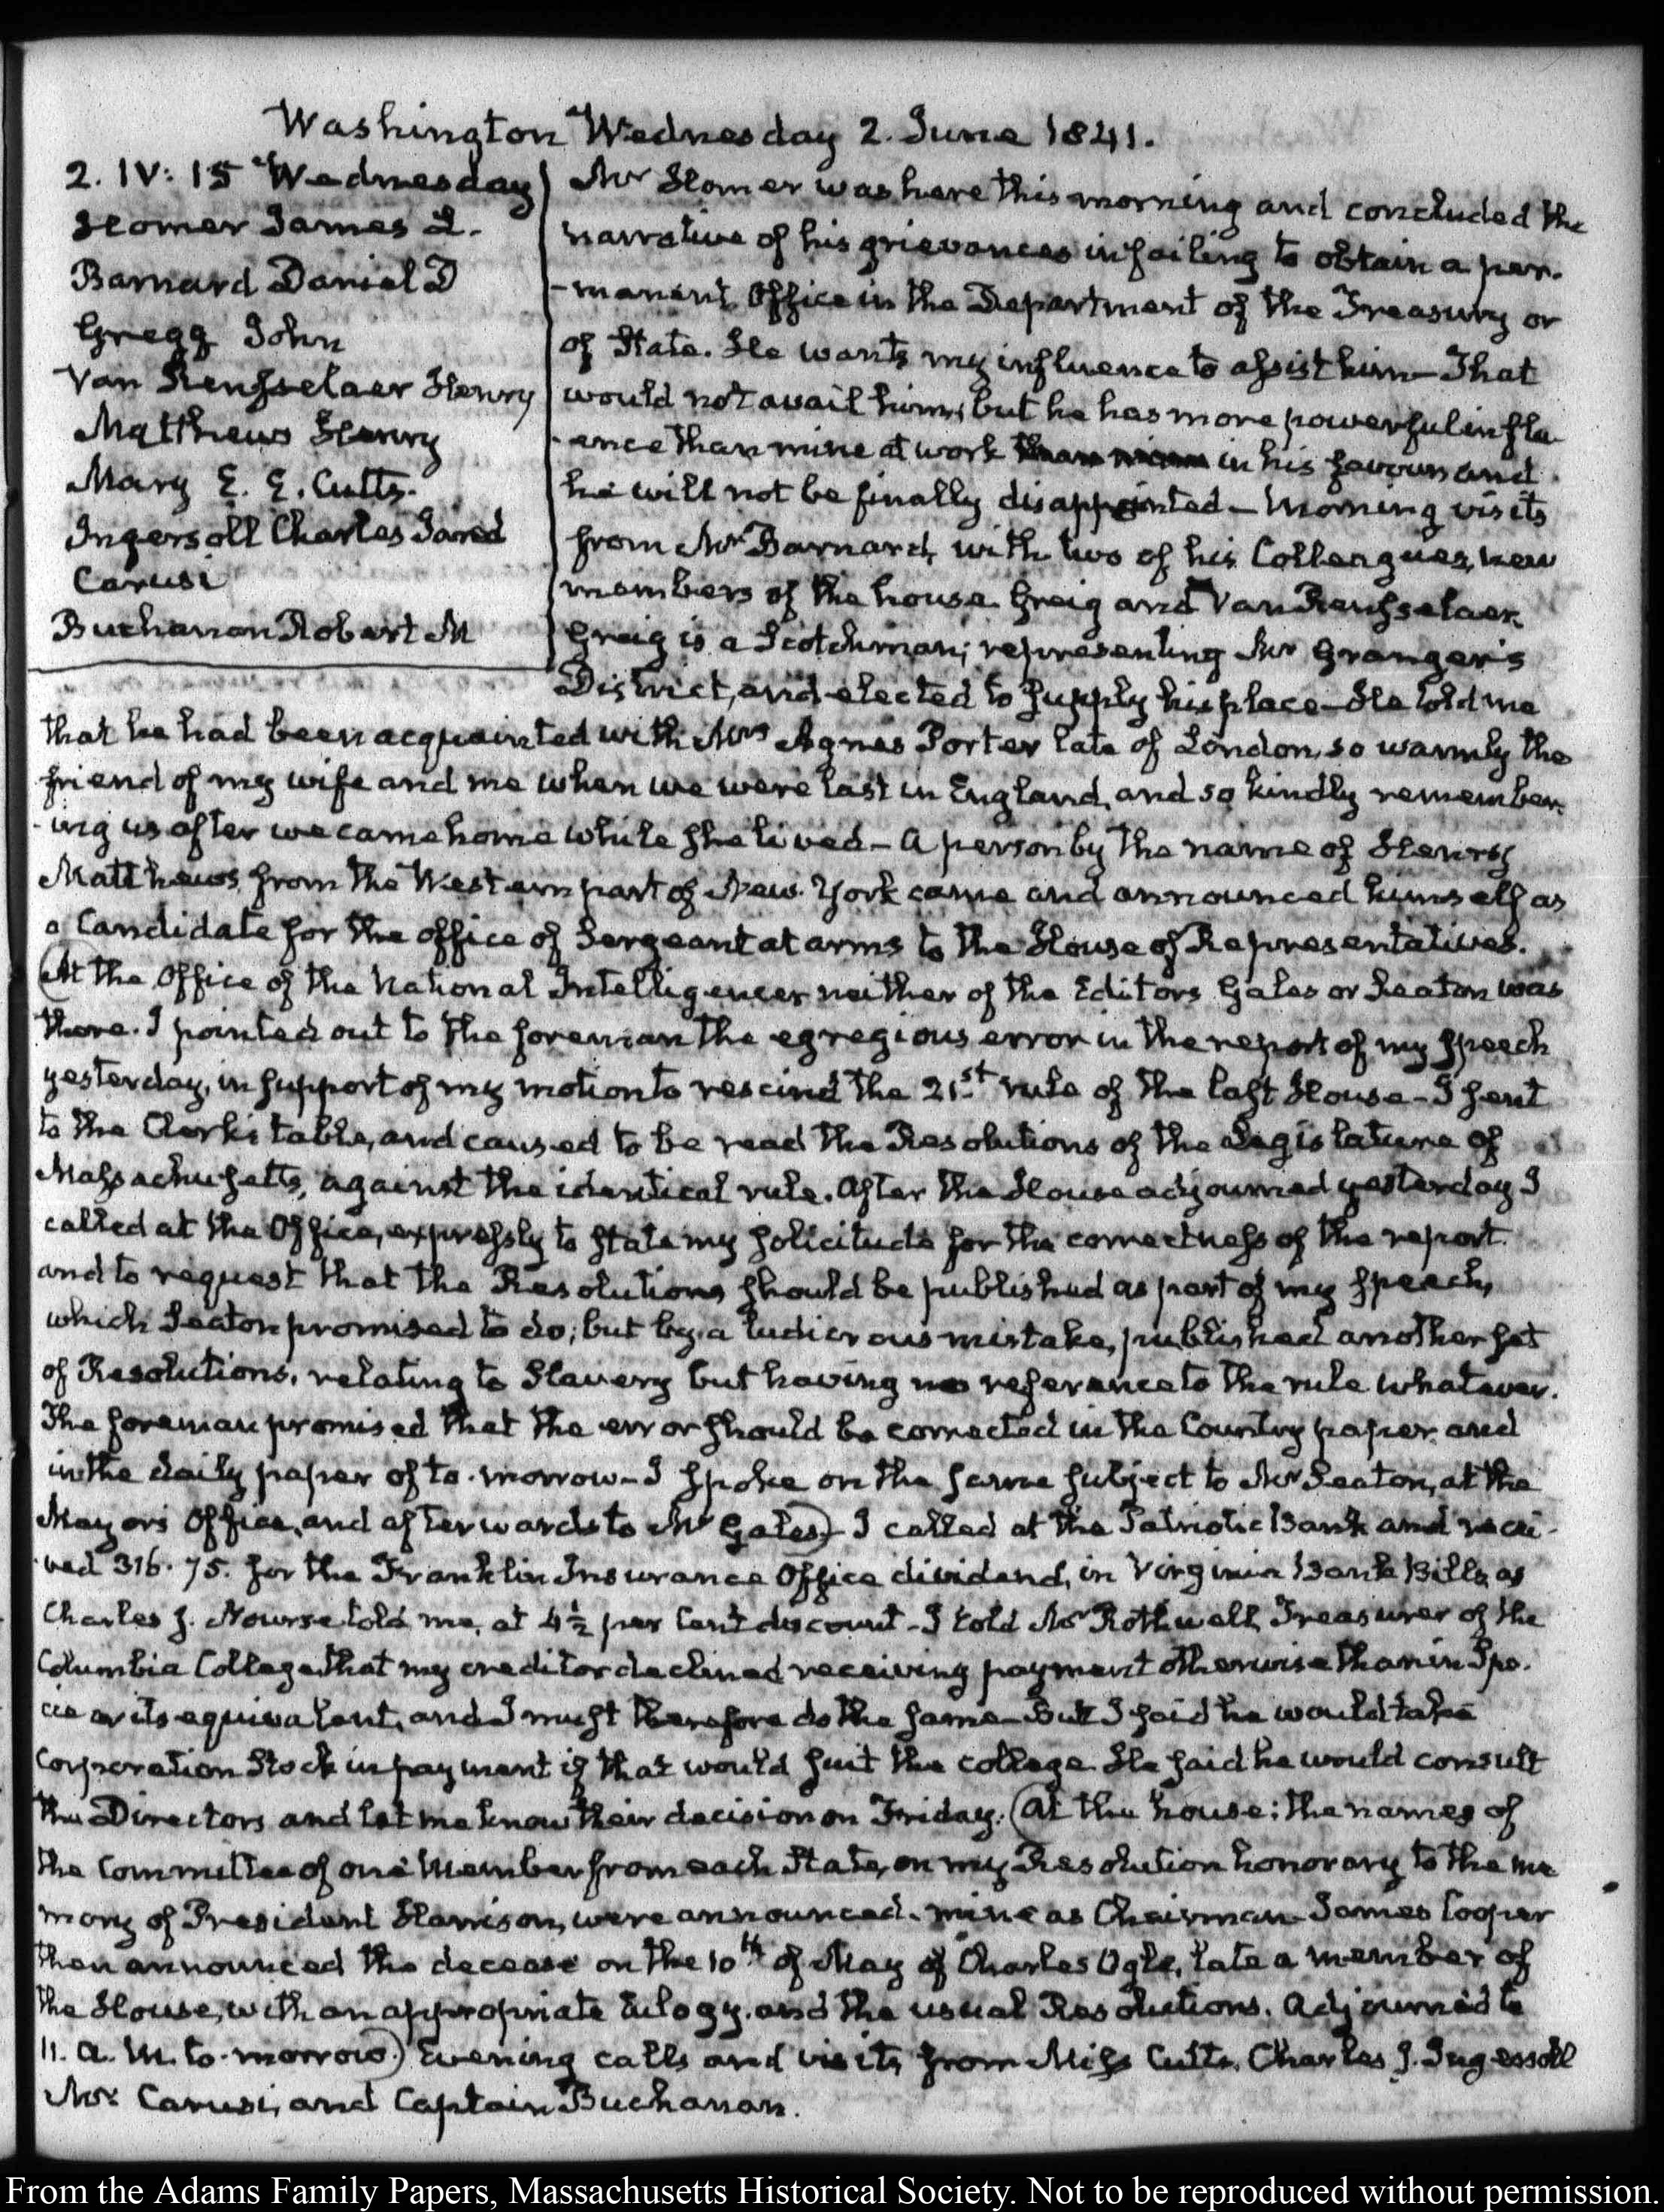 Washington Wednesday 2. June 1841.
2. IV: 15 Wednesday
Homer James L.
Barnard Daniel D
Gregg John
Van Rensselaer Henry
Matthews Henry
Mary E. E. Cutts.
Ingersoll Charles Jared
Carusi
Buchanan Robert M
Mr Homer was here this morning and concluded the
narrative of his grievances in failing to obtain a per-
-manent Office in the Department of the Treasury or
of State. He wants my influence to assist him — That
would not avail him; but he has more powerful influ-
-ence than mine at work than mine in his favour and
he will not be finally disappointed — Morning visits
from Mr Barnard, with two of his Colleagues, new
members of the house. Greig and Van Rensselaer.
Greig is a Scotchman; representing Mr Granger's
District, and elected to supply his place — He told me
that he had been acquainted with Mrs Agnes Porter late of London, so warmly the
friend of my wife and me when we were last in England, and so kindly remember-
-ing us after we came home while she lived — A person by the name of Henry
Matthews, from the Western part of New York came and announced himself as
a Candidate for the office of Sergeant at arms to the House of Representatives.
(At the Office of the National Intelligencer neither of the Editors Gales or Seaton was
there. I pointed out to the foreman the egregious error in the report of my speech
yesterday, in support of my motion to rescind the 21st rule of the last House — I sent
to the Clerk's table, and caused to be read the Resolutions of the Legislature of
Massachusetts, against the identical rule. After the House adjourned yesterday I
called at the Office, expressly to state my solicitude for the correctness of the report.
and to request that the Resolutions should be published as part of my speech,
which Seaton promised to do; but by a ludicrous mistake, published another set
of Resolutions, relating to Slavery but having no reference to the rule whatever.
The foreman promised that the error should be corrected in the Country paper and
in the daily paper of to-morrow — I spoke on the same subject to Mr Seaton, at the
Mayors Office, and afterwards to Mr Gales) — I called at the Patriotic Bank and recei-
-ved 316.75. for the Franklin Insurance Office dividend, in Virginia Bank Bills, as
Charles J. Nourse told me, at 4½ per Cent discount — I told Mr Rothwell, Treasurer of the
Columbia College that my creditor declined receiving payment otherwise than in Spe-
cie or its equivalent, and I must therefore do the same — But I said he would take
Corporation Stock in payment if that would suit the college. He said he would consult
the Directors and let me know their decision on Friday. (At the house; the names of
the Committee of one Member from each State, on my Resolution honorary to the me
mory of President Harrison, were announced. mine as Chairman — James Cooper
then announced the decease on the 10th of May of Charles Ogle, late a member of
the House, with an appropriate Eulogy, and the usual Resolutions. Adjourned to
11. a.m. to-morrow.) Evening calls and visits from Miss Cutts, Charles J. Ingersoll
Mr Carusi, and Captain Buchanan.
From the Adams Family Papers, Massachusetts Historical Society. Not to be reproduced without permission.